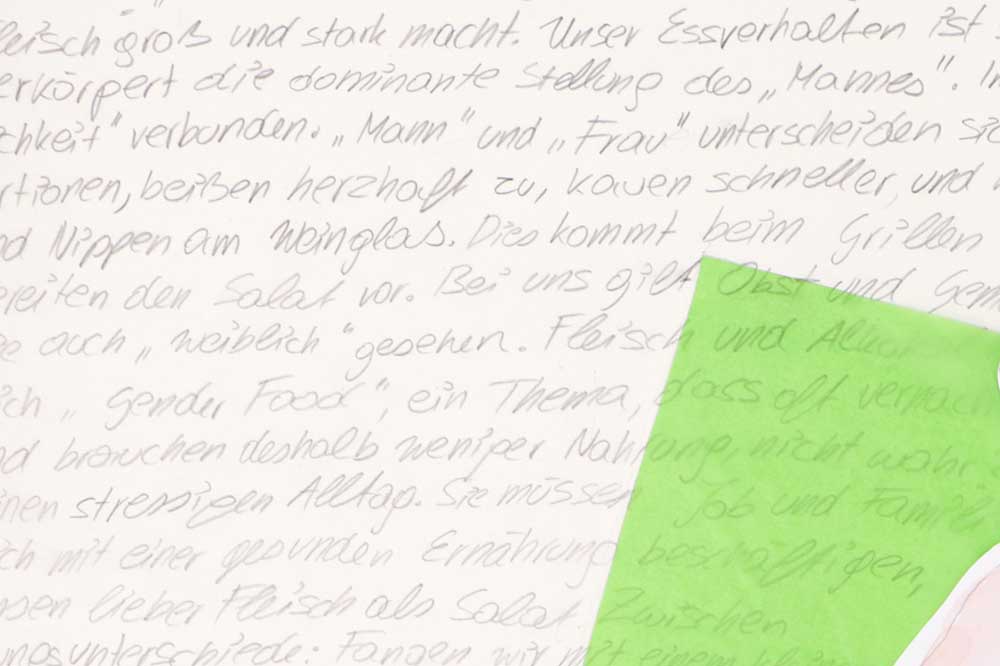 Fleisch groß und stark macht. Unser Essverhalten ist
erkörpert die dominante Stellung des „Mannes". In
chkeit" verbunden. „Mann" und „Frau" unterscheiden sic
rtionen, beißen herzhaft zu, kauen schneller, und
nd Nippen am Weinglas. Dies kommt beim Grillen
ereiten den Salat vor. Bei uns gilt Obst und Gem
auch „weiblich" gesehen. Fleisch und Alkohol
ich „Gender Food", ein Thema, dass oft vernach
nd brauchen deshalb weniger Nahrung, nicht wahr
inen stressigen Alltag. Sie müssen Job und Famili
ich mit einer gesunden Ernährung beschäftigen,
ssen lieber Fleisch als Salat. Zwischen
ungsunterschiede: Fangen wir mit einem